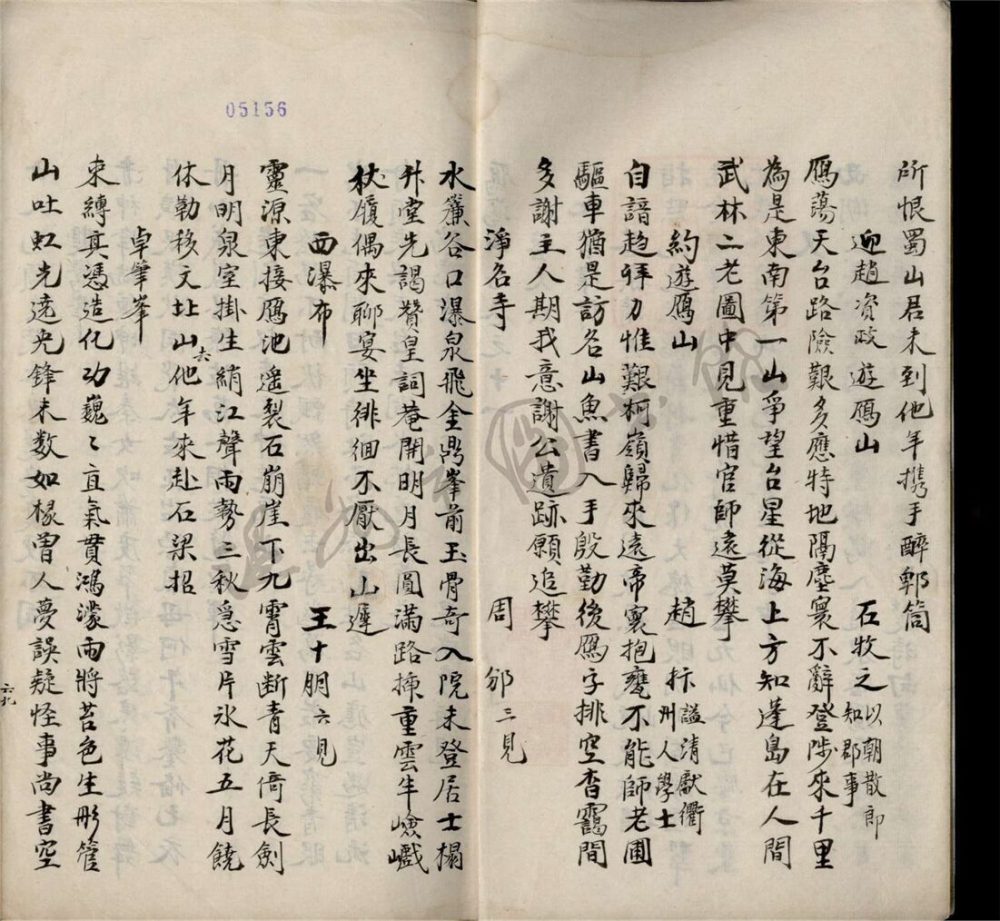 05156
所恨蜀山君未到他年携手醉郫筒
迎趙資政遊鴈山 石牧之 以朝散郎知郡事
鴈蕩天台路險艱多應特地隔塵寰不辭登陟來千里
為是東南第一山爭望台星從海上方知蓬島在人間
武林二老圖中見重惜官師遠莫攀
約遊鴈山 趙 抃 謚清獻衢州人學士
自諳趋拜力惟艱柯嶺歸來遠帝寰抱甕不能師老圃
驅車猶是訪名山魚書入手殷勤後鴈字排空杳靄間
多謝主人期我意謝公遺跡願追攀
淨名寺 周 邠 三見
水簾谷口瀑泉飛金鼎峯前玉骨奇入院未登居士榻
升堂先謁贊皇詞菴開明月長圓滿路掩重雲半嶮巇
杖履偶來聊宴坐徘徊不厭出山遲
西瀑布 王十朋 六見
靈源東接鴈池遥裂石崩崖下九霄雲断青天倚長劍
月明泉室掛生綃江聲雨勢三秋急雪片氷花五月饒
休勒移文北山六他年來赴石梁招
卓筆峯
束縛真憑造化功巍〻直氣貫鴻濛雨將苔色生彤管
山吐虹光遶光鋒未数如椽曽人夢誤疑怪事尚書空
六九